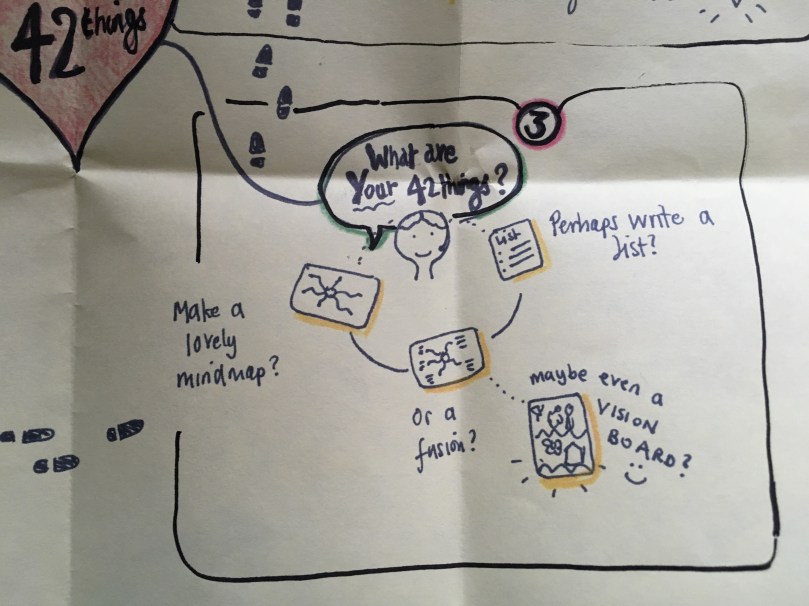 42 things
3
What are
Your 42things?
List
Perhaps write a
list?
Make a
lovely
mindmap?
or a
fusion?
maybe even a
VISION
BOARD?